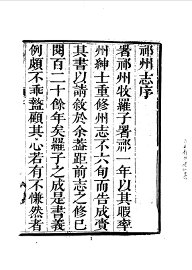 祁州志序
署祁州牧羅子署祁一年以其暇率
州紳士重修州志不六旬而告成賫
其書以請敘於余蓋距前志之修已
閱百二十餘年矣羅子之成是書義
例頗不乖盭顧其心若有不慊然者